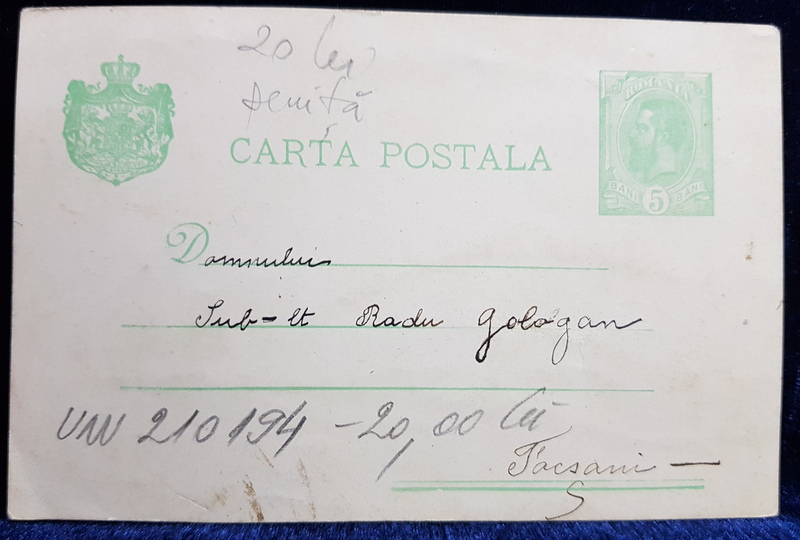 20 lei
ROMANIA
CARTA POSTALA
BANI 5 BANI
Domnului
Sub-lt Radu Gologan
210194 -20,00 lei
Focsani —